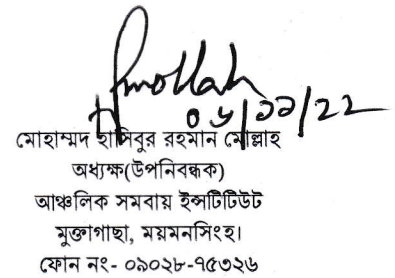 HMollah
০৬/১১/২২
মোহাম্মদ হাসিবুর রহমান মোল্লাহ
অধ্যক্ষ(উপনিবন্ধক)
আঞ্চলিক সমবায় ইন্সটিটিউট
মুক্তাগাছা, ময়মনসিংহ।
ফোন নং- ০৯০২৮-৭৫৩২৬